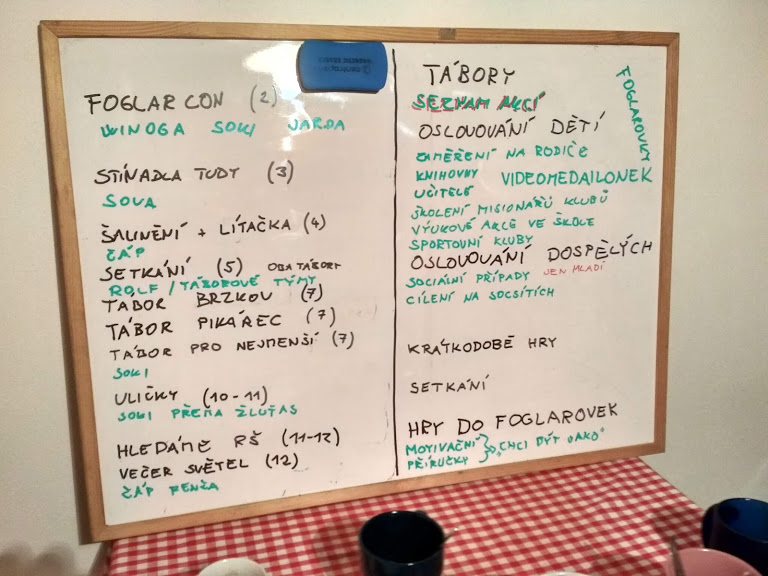 FOGLAR CON (2)
WINOGA SOKI JARDA
STÍNADLA TUDY (3)
SOVA
ŠALINĚNÍ + LÍTAČKA (4)
ČÁP
SETKÁNÍ (5) OBA TÁBORY
ROLF / TÁBOROVÉ TÝMY
TÁBOR BRZKOV (7)
TÁBOR PIKÁREC (7)
TÁBOR PRO NEJMENŠÍ (7)
SOKI
ULIČKY (10-11)
SOKI PŘEMA ŽLUŤAS
HLEDÁME RŠ (11-12)
VEČER SVĚTEL (12)
ČÁP RENŽA
TÁBORY
SEZNAM AKCÍ
OSLOVOVÁNÍ DĚTÍ
ZAMĚŘENÍ NA RODIČE
KNIHOVNY VIDEOMEDAILONEK
UČITELÉ
ŠKOLENÍ MISIONÁŘŮ KLUBŮ
VÝUKOVÉ AKCE VE ŠKOLE
SPORTOVNÍ KLUBY
OSLOVOVÁNÍ DOSPĚLÝCH
SOCIÁLNÍ PŘÍPADY JEN MLADÍ
CÍLENÍ NA SOCSÍTÍCH
KRÁTKODOBÉ HRY
SETKÁNÍ
HRY DO FOGLAROVEK
MOTIVAČNÍ „CHCI BÝT JAKO"
PŘÍRUČKY
FOGLAROVKY